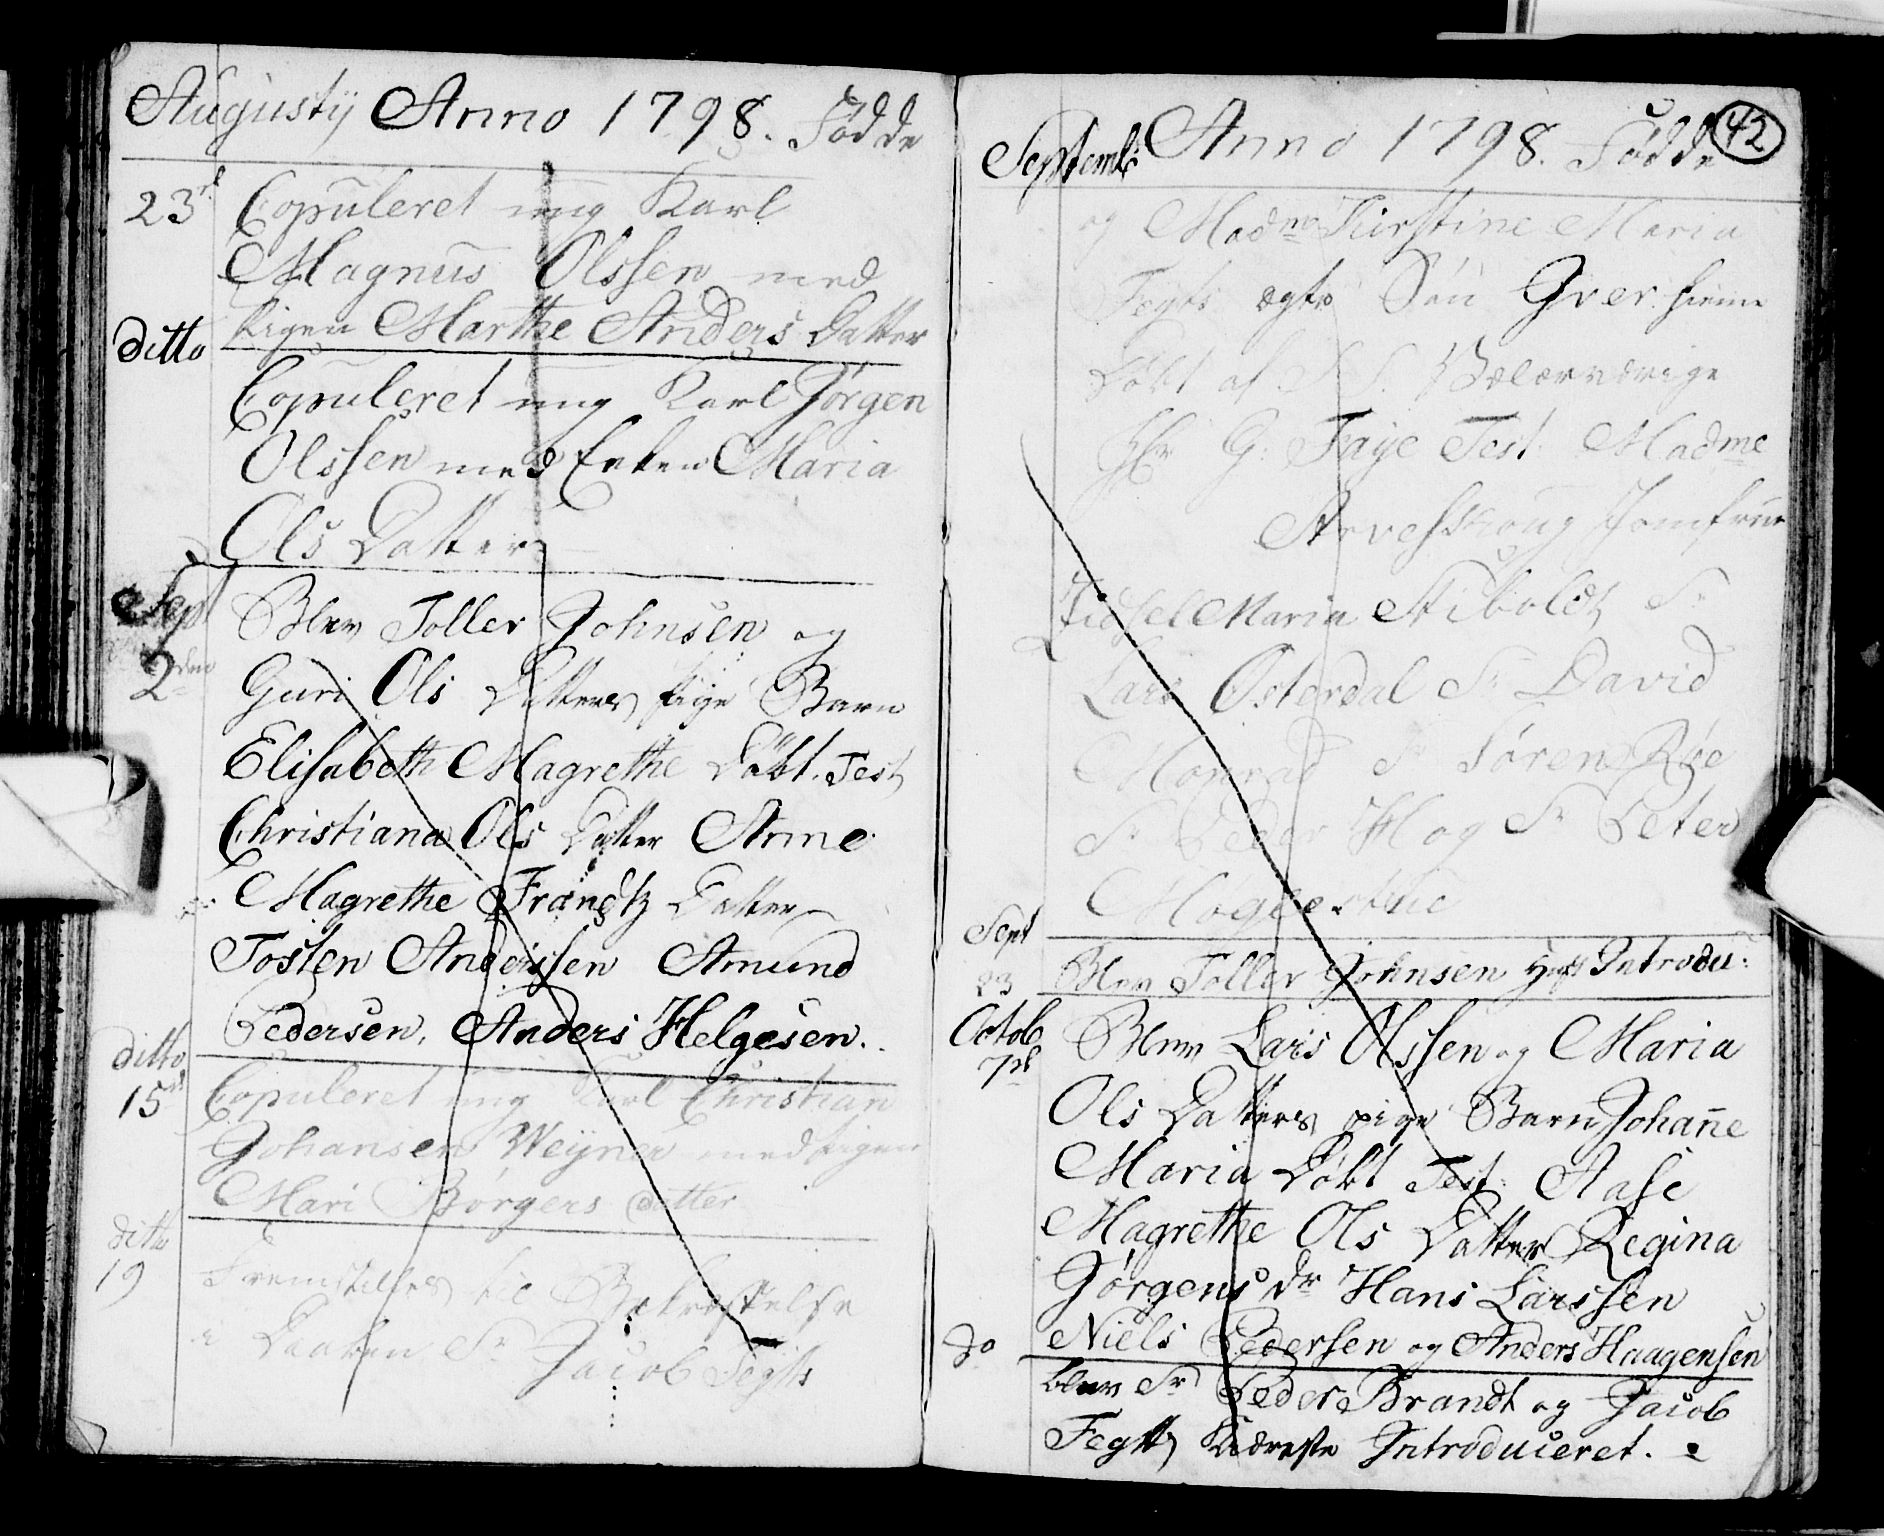 Augustij Anno 1798. Födde
23d Copuleret ung Karl
Magnus Olssen med
Pigen Marthe Anders Datter
ditto
Copuleret ung Karl Jørgen
Olssen med Enken Maria
Ols Datter
Sept
2den
Blev Toller Johnsen og
Guri Ols Datters pige Barn
Elisabeth Magrethe Döbt. Test
Christiana Ols Datter Anne
Magrethe Frandtz Datter
Tosten Anderssen Amund
Pedersen, Anders Helgesen.
ditto
15d Copuleret ung Karl Christian
Johansen Weyner med Pigen
Mari Børgers Datter
ditto
19 Fremstilles til Bekræftelse
i Daaben Sr Jacob Fegts
42
Septembr Anno 1798. Födde
og Madme Kirstine Maria
Fegts ægte Sön Gver hieme
Döbt af S. S. Velærværige
Hr G: Faye Test: Madme
Arveskoug Jomfrue
Zidsel Maria Stiboldt Sr
Lars Østerdal Sr David
Monrad Sr Søren Røe
Sr Peder Hog Sr Peter
Møglestue
Sept
23 Blev Toller Johnsen Hust Introdu:
Octob
7d Blev Lars Olssen og Maria
Ols Datters pige Barn Johañe
Maria Döbt Test: Aase
Magrethe Ols Datter Regina
Jørgens Dr Hans Larssen
Niels Pedersen og Anders Haagensen
do
blev Sr Peder Brandt og Jacob
Fegts Kiæreste Introduceret.